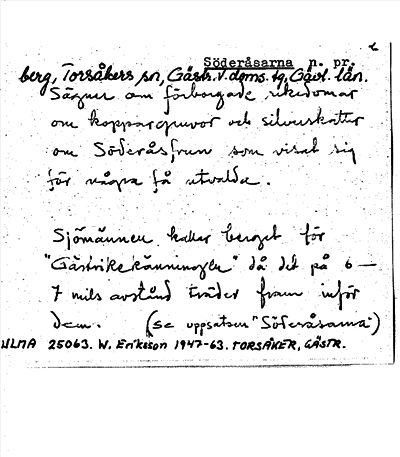 Söderåsarna n. pr.
berg, Torsåkers sn, Gästr. V. doms. tg, Gävl. län.
Sägner om förborgade rikedomar
om koppargruvor och silverskatter
om Söderåsfrun som visat sig
för några få utvalda.
Sjömännen kallar berget för
"Gästrikekänningen" då det på 6—
7 mils avstånd träder fram inför
dem. (se uppsatsen "Söderåsarna")
ULMA 25063. W. Eriksson 1947-63. TORSÅKER, GÄSTR.